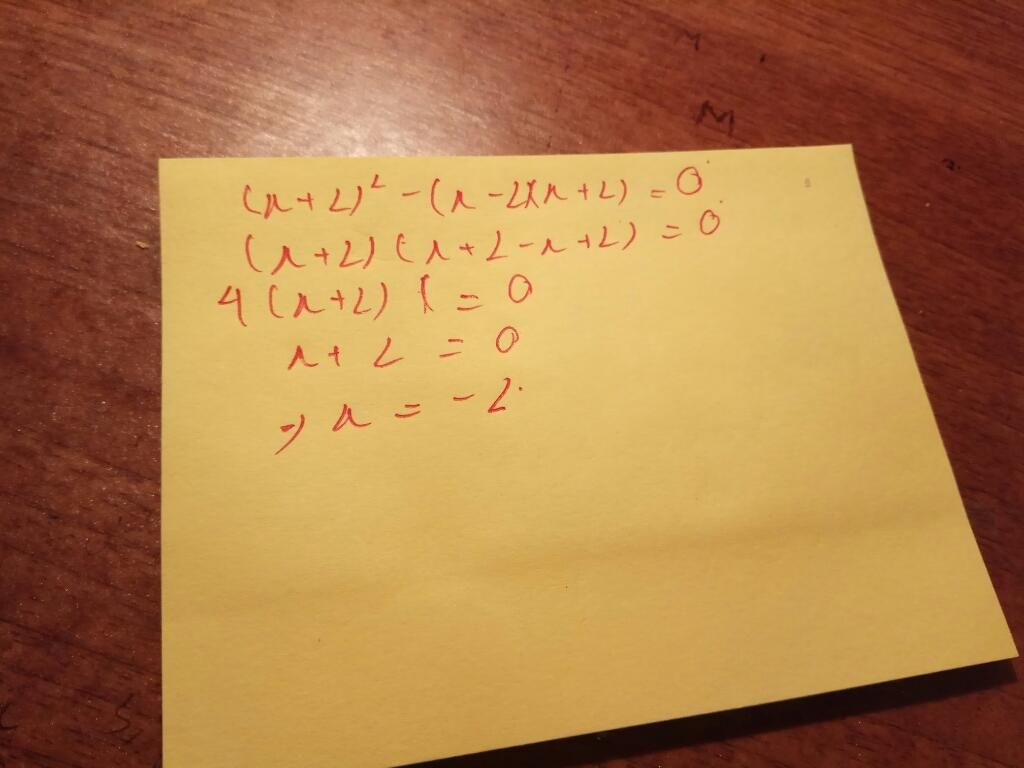 (x+2)² - (x-2)(x+2) = 0
(x+2) (x+2-x+2) = 0
4 (x+2) = 0
x + 2 = 0
⇒ x = -2.